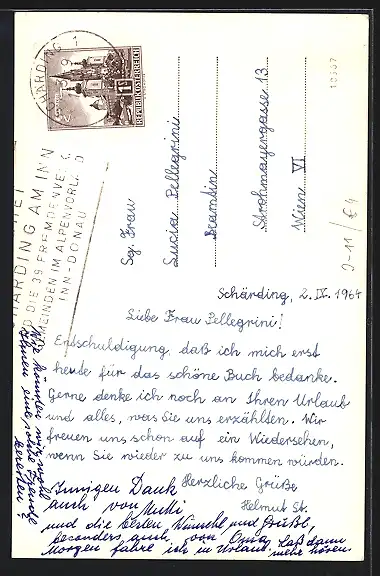 SCHÄRDING
2. 9. 64
REPUBLIK ÖSTERREICH
SCHÄRDING AM INN
DIE 39 FREMDENVERK.
GEMEINDEN IM ALPENVORLAND
INN-DONAU
10337
Sg. Frau
Lucia Pellegrini
Beamtin
Strohmayergasse 13
Wien VI
9-11/64
Schärding, 2.IX.1964
Liebe Frau Pellegrini!
Entschuldigung, daß ich mich erst
heute für das schöne Buch bedanke.
Gerne denke ich noch an Ihren Urlaub
und alles, was Sie uns erzählten. Wir
freuen uns schon auf ein Wiedersehen,
wenn Sie wieder zu uns kommen würden.
Herzliche Grüße
Helmut St.
Innigen Dank
auch von Mutti
und die besten Wünsche und Grüße,
besonders auch von Oma. Laß dann
Morgen fahre ich in Urlaub. mehr hören.
Wie können wir wohl
Ihnen eine Freude
bereiten?